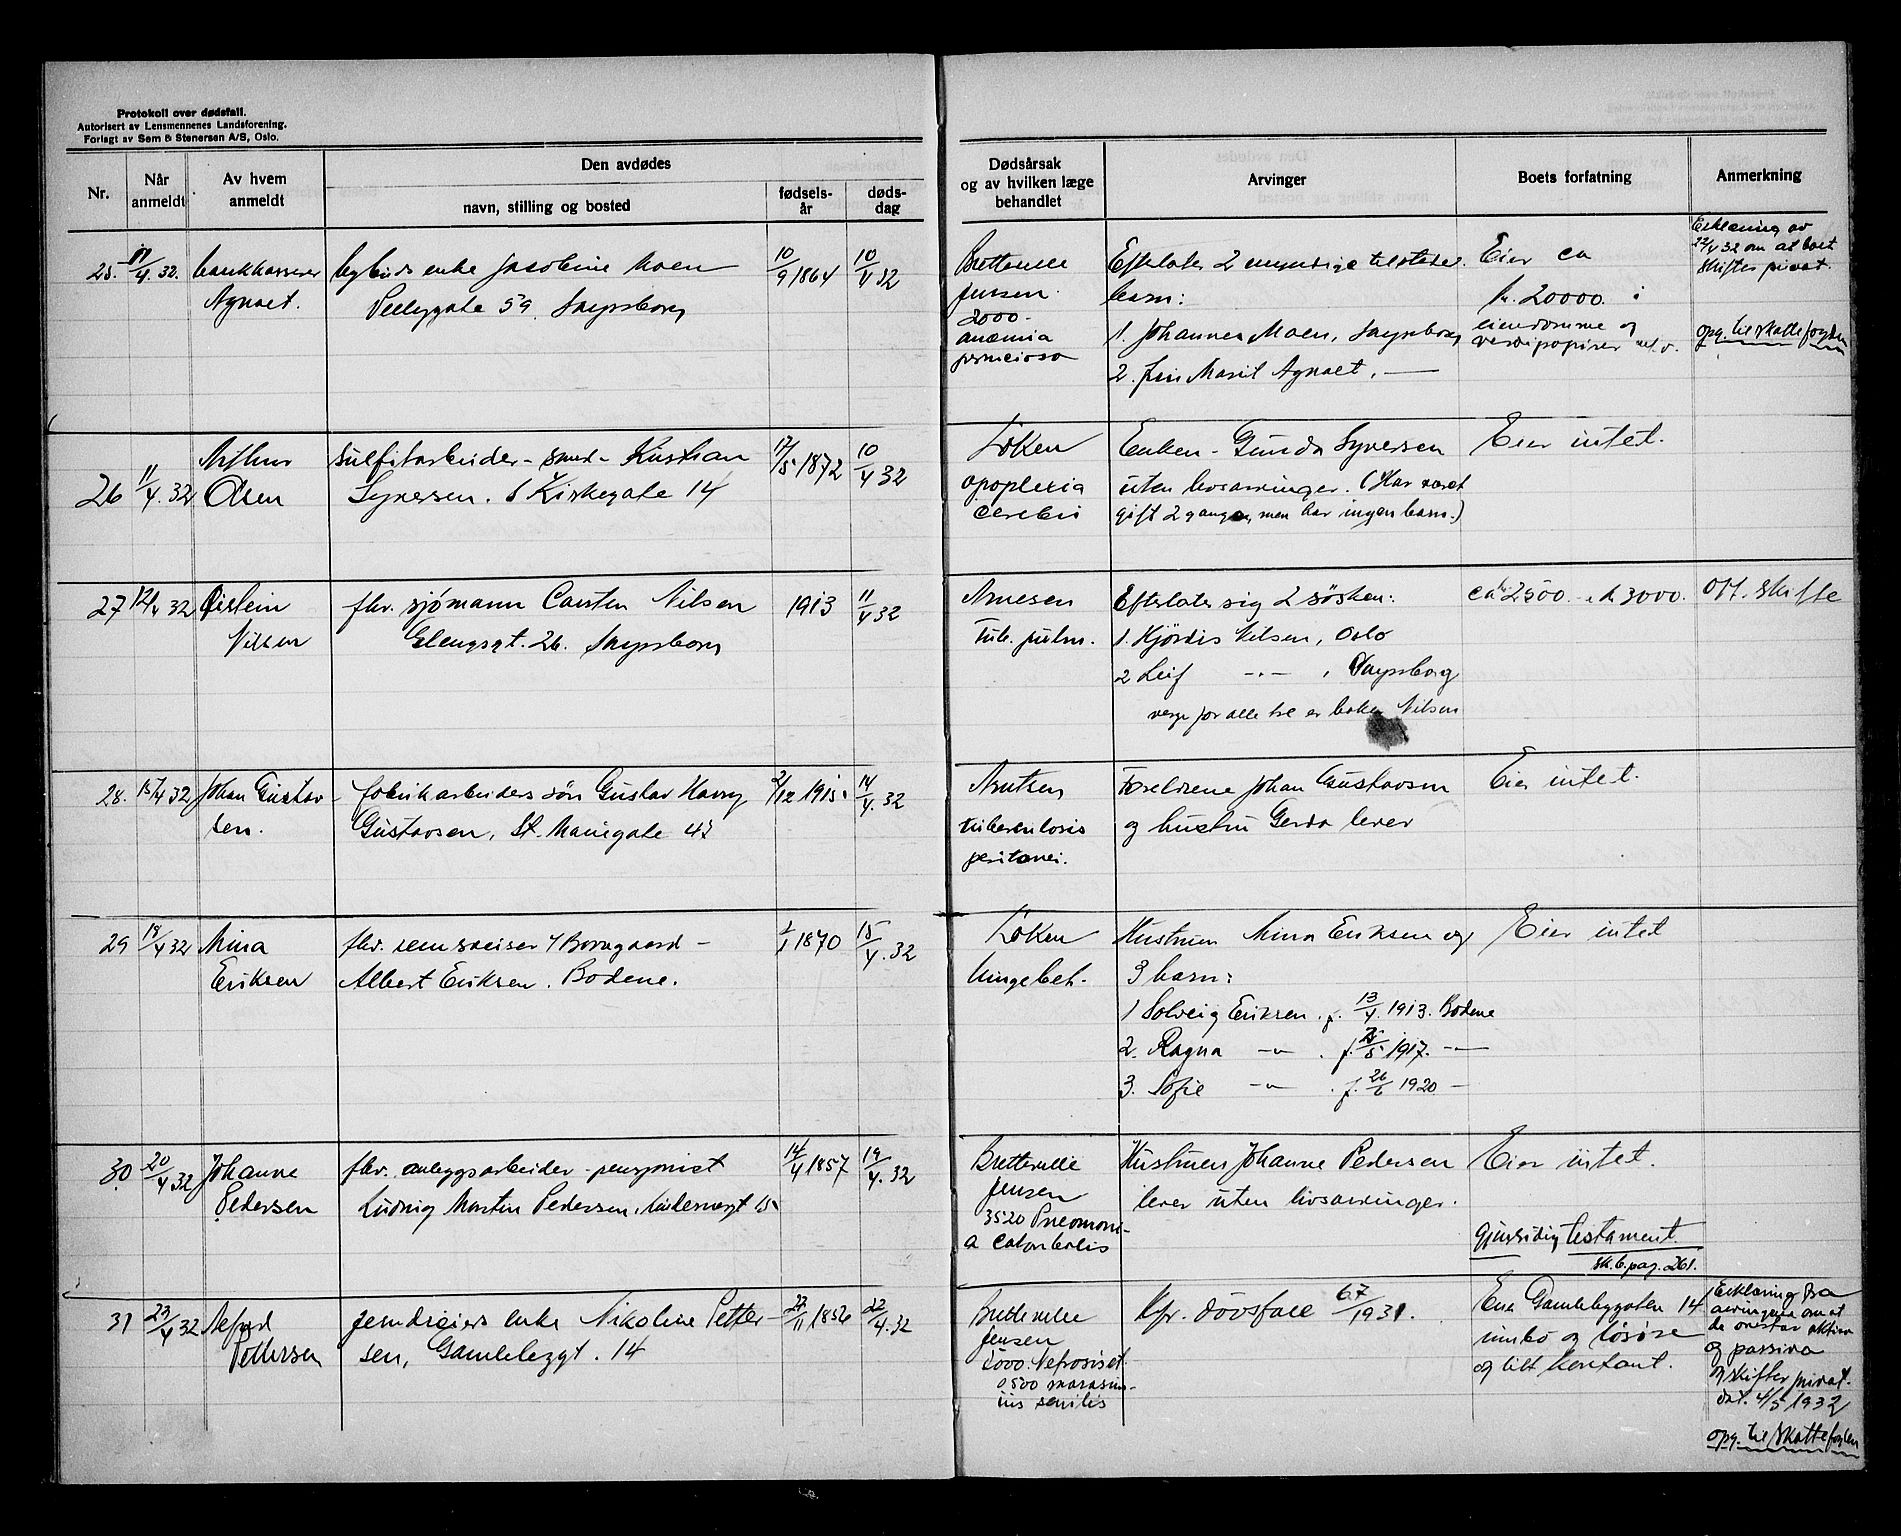 Protokoll over dødsfall.
Autorisert av Lensmennenes Landsforening.
Forlagt av Sem & Stenersen A/S, Oslo.
Nr.
Når anmeldt
Av hvem anmeldt
Den avdødes
navn, stilling og bosted
fødsels-år
døds-dag
Dødsårsak og av hvilken læge behandlet
Arvinger
Boets forfatning
Anmerkning
25. 11/4.32. bankkasserer bybuds enke Jacobine Moen 10/9 1864 10/4 32
Agnaet. Peliygate 59, Sarpsborg
Bretteville
Jensen
2000
anæmia
perniciosa
Efterlater 2 myndige tilstede
barn:
1. Johannes Moen, Sarpsborg
2. fru Marit Agnaet, —
Eier ca
kr. 20000. i
eiendomme og
verdipapirer m.v.
Erklæring av
22/4 32 om at boet
skiftes privat.
opg. til skattefogden
26 11/4.32 Arthur Olsen
sulfitarbeider - smed - Kristian 17/5 1872 10/4 32
Syversen. Kirkegate 14
Løken
apoplexia
cerebri
Enken - Gunda Syversen
uten livsarvinger. (Har været
gift 2 ganger, men har ingen barn.)
Eier intet.
27 12/4 32 Øistein Nilsen
fhv. sjømann Carsten Nilsen 1913 11/4 32
Glengsgt. 26. Sarpsborg
Arnesen
tub. pulm.
Efterlater sig 2 søsken:
1. Hjørdis Nilsen, Oslo
2 Leif -"- , Sarpsborg
verge for alle tre er baker Nilsen
ca kr 2500. a kr 3000.
Off. skifte
28. 15/4 32 Johan Gustavsen.
fabrikarbeiders søn Gustav Harry 2/12 1915. 14/4.32
Gustavsen, St. Mariegate 43
Arnesen
tuberculosis
peritonei.
Foreldrene Johan Gustavsen
og hustru Gerda lever
Eier intet.
29 18/4 32 Mina Eriksen
fhv. rensveiser / Borregaard - 1/1 1870 15/4.32
Albert Eriksen. Bodene.
Løken
lungebet.
Hustruen Mina Eriksen og
3 barn:
1 Solveig Eriksen . f. 13/4. 1913. Bodene
2. Ragna -"- . f. 1917. -"-
3. Sofie -"- . f. 26/6 1920 -
Eier intet
30. 20/4 32 Johanne Pedersen
fhv. anleggsarbeider - pensjonist 14/4 1857 19/4.32
Ludvig Martin Pedersen,
Bretteville
Jensen
3520 Pneomoni-
a catarrhalis
Hustruen Johanne Pedersen
lever uten livsarvinger.
Eier intet.
gjensidig testament.
sk.b.pag. 261.
31 23/4 32 Alfred Pettersen
jerndreiers enke Nikoline Petter- 27/11 1856 22/4.32
sen, Gamlebygt. 14
Bretteville
Jensen
2000. Nefrosis et
0500 marasm-
us senilis
Kfr. dødsfall 67/1931.
Eier Gamlebygaten 14
innbo og løsøre
og litt kontant.
Erklæring fra
arvingene om at
de overtar aktiva
og passiva
og skifter privat.
dat. 4/5 1932
opg. til skattefogden